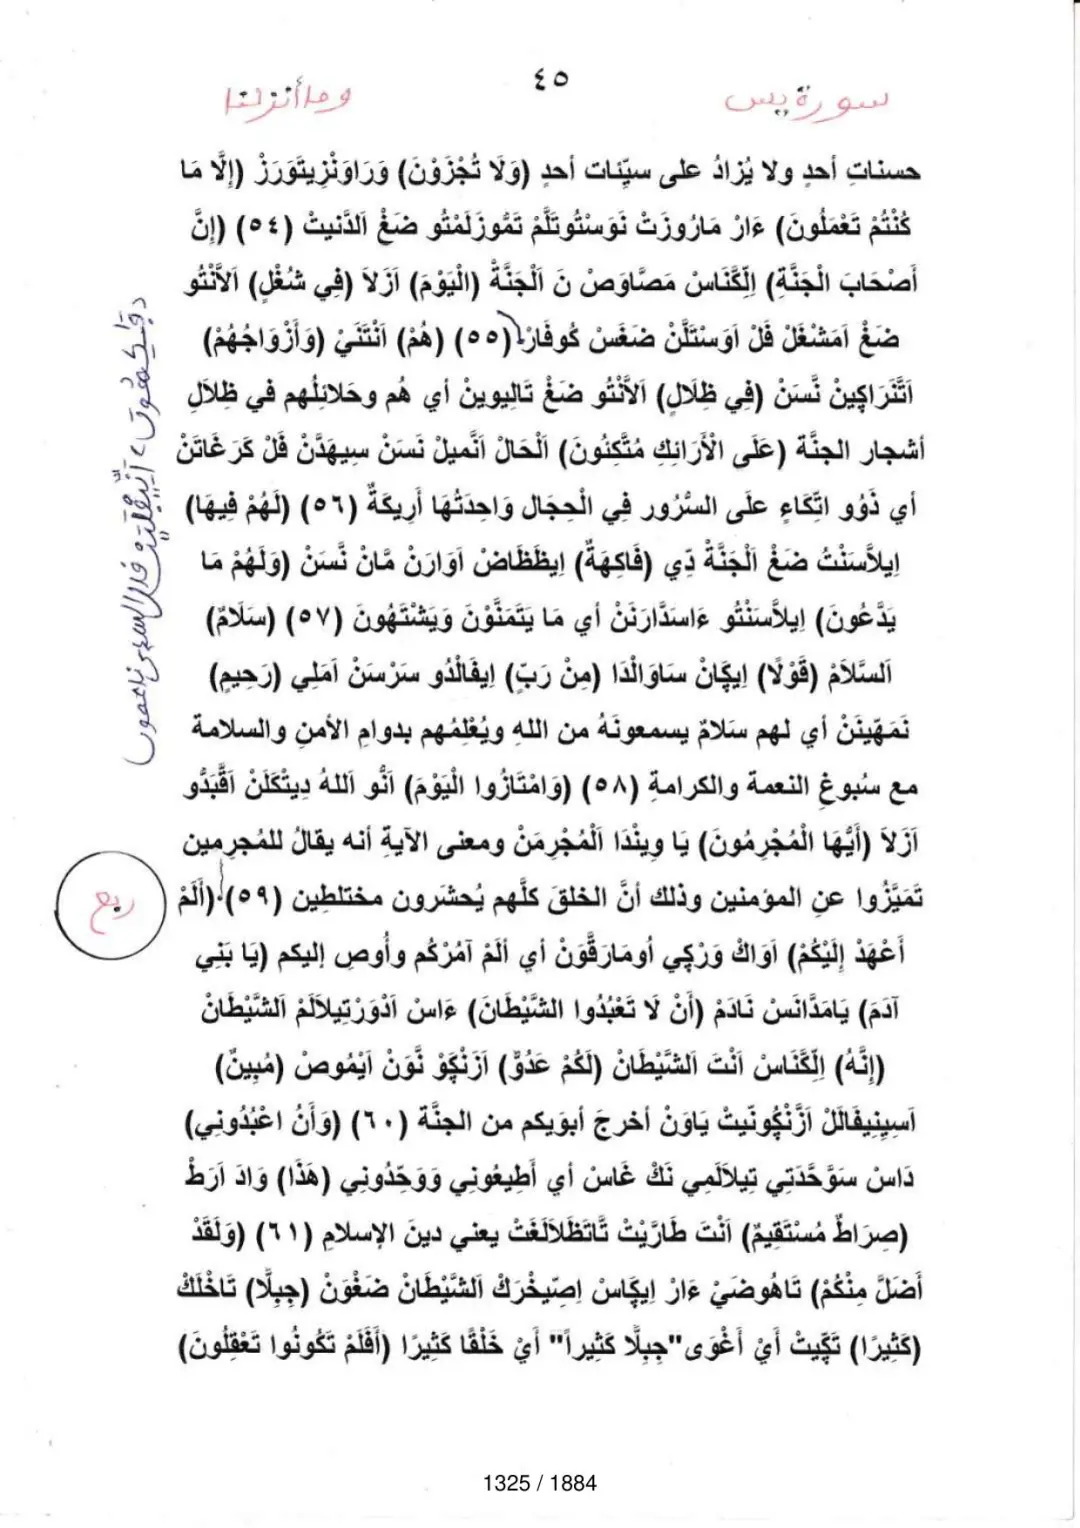 سورة يس
٤٥
وما أنزلنا
حسناتِ أحدٍ ولا يُزادُ على سيّئات أحدٍ (وَلَا تُجْزَوْنَ) وَرَاوَنْزِيتَوَرَزْ (إِلَّا مَا
كُنْتُمْ تَعْمَلُونَ) ءَارْ مَارُوزَتْ نَوَسْتُوتَلَّمْ تَمُّوزَلَمْتُو ضَغْ اَلدَّنيتْ (٥٤) (إِنَّ
أَصْحَابَ الْجَنَّةِ) اِلِڭَّنَاسْ مَصَّاوَصْ نَ اَلْجَنَّةْ (الْيَوْمَ) اَزَلاَ (فِي شُغُلٍ) اَلاَّنْتُو
ضَغْ اَمَشْغَلْ فَلْ اَوَسْتَلَّنْ ضَغَسْ كُوفَارْ (٥٥) (هُمْ) اَنْتَنَيْ (وَأَزْوَاجُهُمْ)
اَتَّنَرَاكِينْ نَّسَنْ (فِي ظِلَالٍ) اَلاَّنْتُو ضَغْ تَالِيوِينْ أي هُم وحَلائِلُهم في ظِلالِ
أشجار الجنَّة (عَلَى الْأَرَائِكِ مُتَّكِئُونَ) اَلْحَالْ اَنَّمِيلْ نَسَنْ سِيهَدَّنْ فَلْ كَرَغَاتَنْ
أي ذَوُو اتِّكَاءٍ علَى السُّرُورِ فِي الْحِجَالِ وَاحِدَتُهَا أَرِيكَةٌ (٥٦) (لَهُمْ فِيهَا)
اِيلاَّسَنْتُ ضَغْ اَلْجَنَّةْ دِي (فَاكِهَةٌ) اِيظَظَاضْ اَوَارَنْ مَّانْ نَّسَنْ (وَلَهُمْ مَا
يَدَّعُونَ) اِيلاَّسَنْتُو ءَاسَدَّارَنَنْ أي مَا يَتَمَنَّوْنَ وَيَشْتَهُونَ (٥٧) (سَلَامٌ)
اَلسَّلَامْ (قَوْلًا) اِيڭَانْ سَاوَالْدَا (مِنْ رَبٍّ) اِيفَالْدُو سَرْسَنْ اَمَلِي (رَحِيمٍ)
نَمَهِّينَنْ أي لهم سَلامٌ يسمعونَهُ من اللهِ ويُعْلِمُهم بدوامِ الأمنِ والسلامة
مع سُبوغِ النعمة والكرامةِ (٥٨) (وَامْتَازُوا الْيَوْمَ) اَنُّو اَللهُ دِيتْكَلَنْ اَقَّبَدُّو
اَزَلاَ (أَيُّهَا الْمُجْرِمُونَ) يَا وِينْدَا اَلْمُجْرِمَنْ ومعنى الآيةِ أنه يقالُ للمُجرِمين
تَمَيَّزُوا عنِ المؤمنين وذلك أنَّ الخلقَ كلَّهم يُحشَرون مختلطِين (٥٩) (أَلَمْ
أَعْهَدْ إِلَيْكُمْ) اَوَاكْ وَرْكِي أُومَارَقَّوَنْ أي ألَمْ آمُرْكُم وأُوصِ إليكم (يَا بَنِي
آدَمَ) يَامَدَّانَسْ نَادَمْ (أَنْ لَا تَعْبُدُوا الشَّيْطَانَ) ءَاسْ اَدْوَرْتِيلاَلَمْ اَلشَّيْطَانْ
(إِنَّهُ) اِلِڭَّنَاسْ اَنْتَ اَلشَّيْطَانْ (لَكُمْ عَدُوٌّ) اَزَنْڭَوْ نَّوَنْ اَيْمُوصْ (مُبِينٌ)
اَسِينِيفَالَلْ اَزَّنْڭُونِّيتْ يَاوَنْ أخرجَ أبوَيكم من الجنَّة (٦٠) (وَأَنِ اعْبُدُونِي)
دَاسْ سَوَّحَّدَتِي تِيلاَلَمِي نَكْ غَاسْ أي أَطِيعُونِي وَوَحِّدُونِي (هَذَا) وَادَ اَرَطْ
(صِرَاطٌ مُسْتَقِيمٌ) اَنْتَ طَارَيْتْ تَّاتَظَلاَلَغَتْ يعني دينَ الإسلامِ (٦١) (وَلَقَدْ
أَضَلَّ مِنْكُمْ) تَاهُوضَيْ ءَارْ اِيڭَاسْ اِصِيخْرَكْ اَلشَّيْطَانْ ضَغْوَنْ (جِبِلًّا) تَاخْلَكْ
(كَثِيرًا) تَڭِّيتْ أيْ أغْوَى "جِبِلًّا كَثِيراً" أيْ خَلْقًا كَثِيرًا (أَفَلَمْ تَكُونُوا تَعْقِلُونَ)
ربع
1325 / 1884